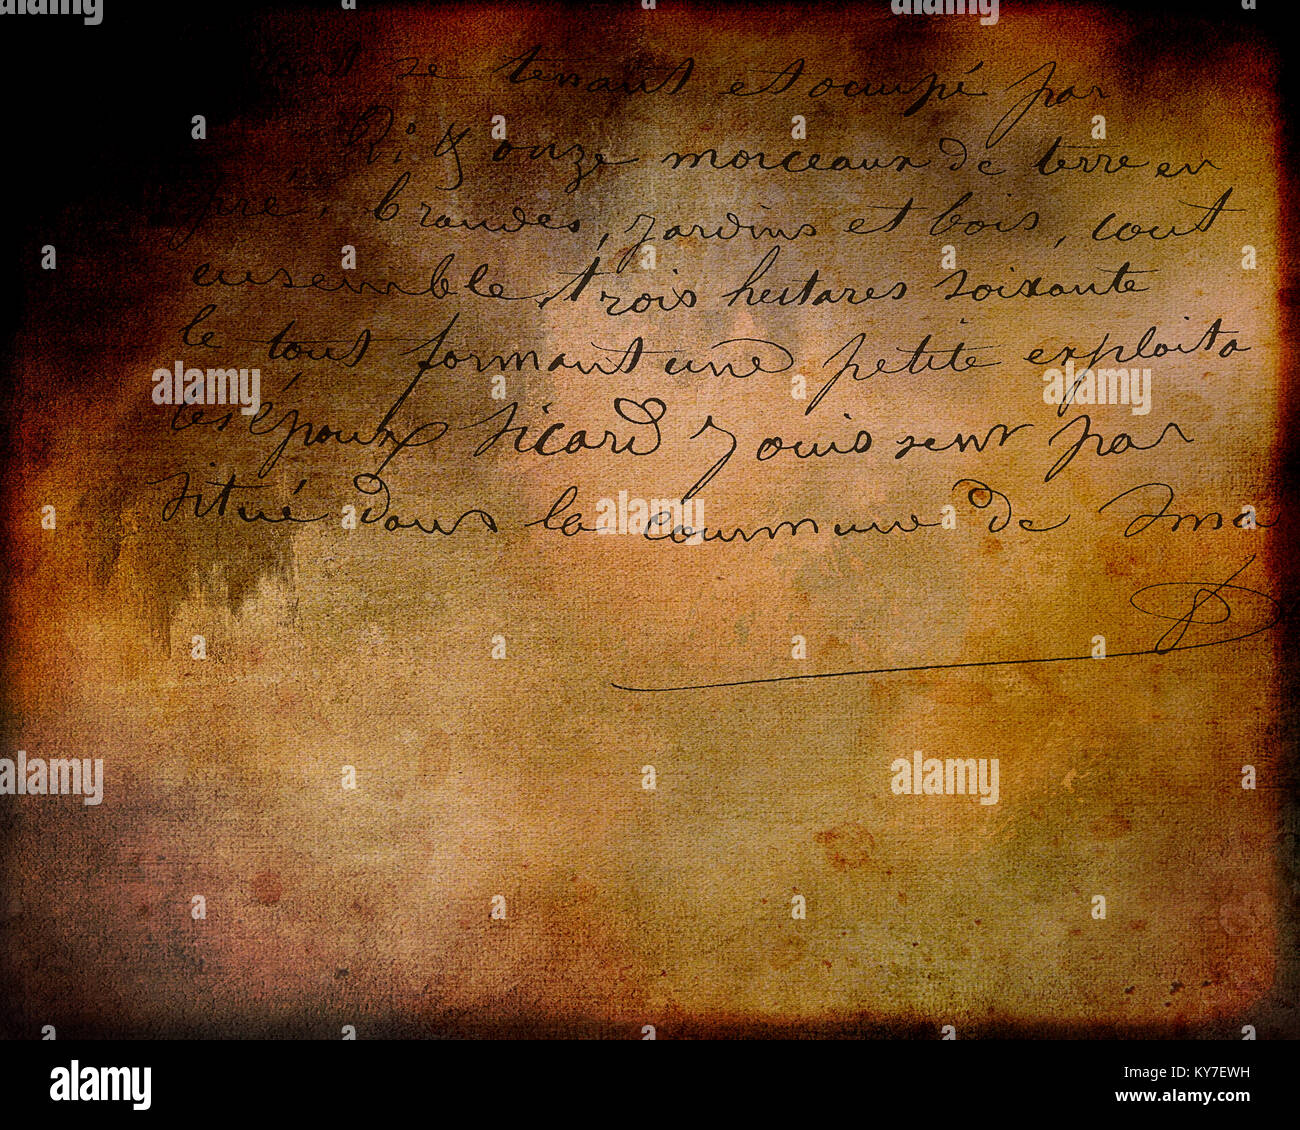 tout se tenant et occupé par
onze morceaux de terre en
pré, brandes, jardins et bois, tout
ensemble, trois hectares soixante
le tout formant une petite exploita
les époux Sicard jouissent par
situé dans la commune de
alamy
alamy
Image ID: KY7EWH
www.alamy.com